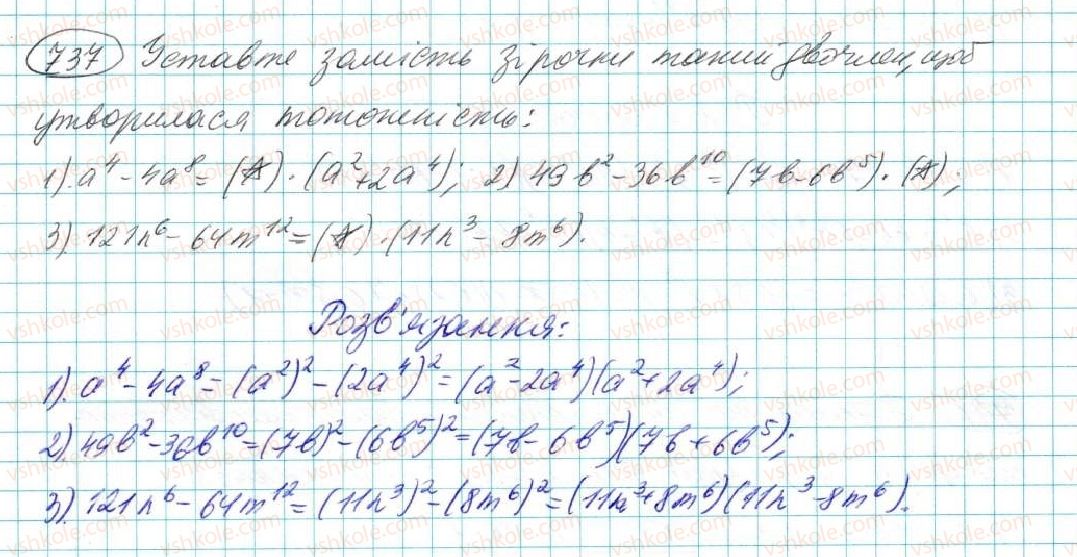 737 Уставте замість зірочки такий двочлен, щоб
утворилася тотожність:
1). a⁴ - 4a⁸ = (*) · (a² + 2a⁴); 2) 49b² - 36b¹⁰ = (7b - 6b⁵) · (*);
3) 121n⁶ - 64m¹² = (*) · (11n³ - 8m⁶).
Розв'язання:
1). a⁴ - 4a⁸ = (a²)² - (2a⁴)² = (a² - 2a⁴)(a² + 2a⁴);
2) 49b² - 36b¹⁰ = (7b)² - (6b⁵)² = (7b - 6b⁵)(7b + 6b⁵);
3). 121n⁶ - 64m¹² = (11n³)² - (8m⁶)² = (11n³ + 8m⁶)(11n³ - 8m⁶).